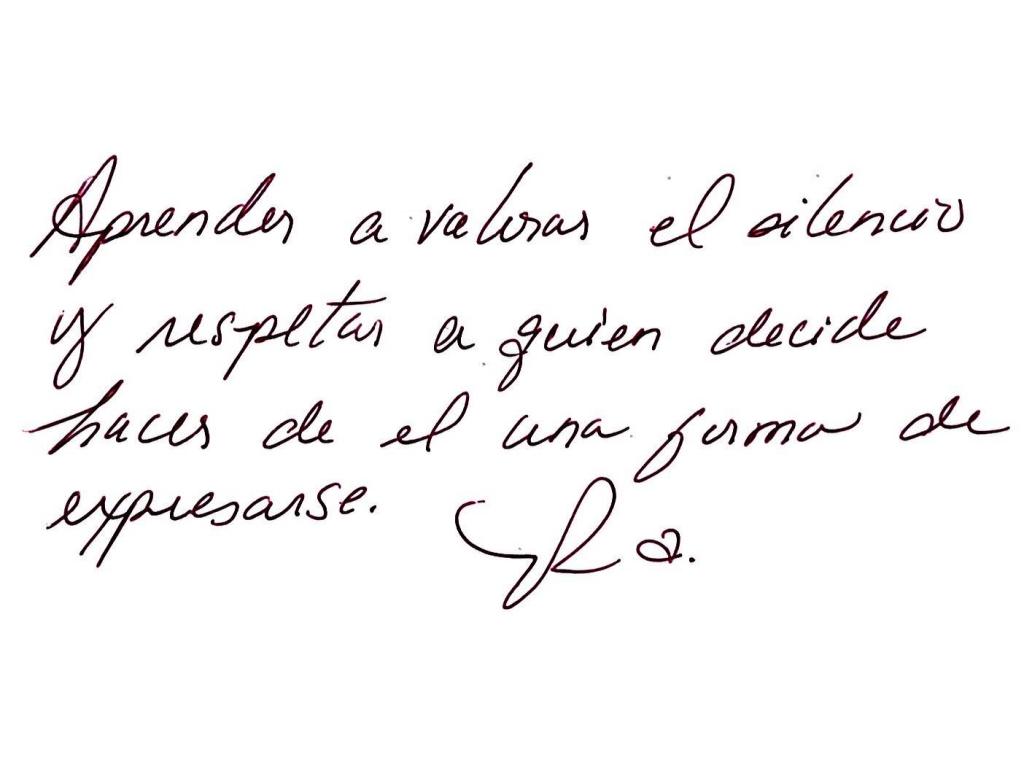 Aprender a valorar el silencio
y respetar a quien decide
hacer de el una forma de
expresarse.